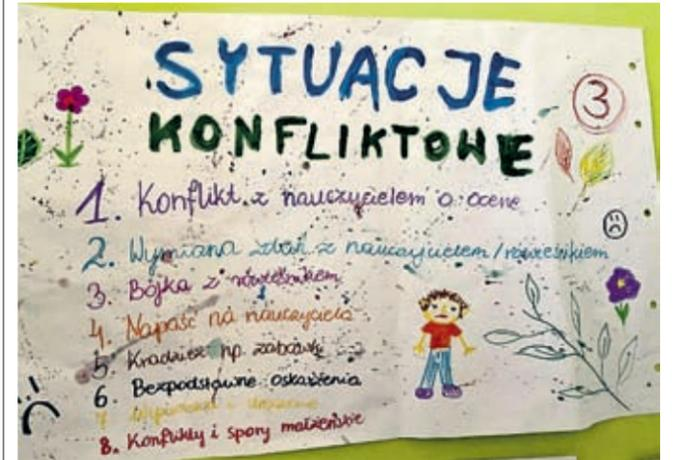 SYTUACJE
KONFLIKTOWE
3
1. Konflikt z nauczycielem o ocenę
2. Wymiana zdań z nauczycielem/rówieśnikiem
3. Bójka z rówieśnikiem
4. Napaść na nauczyciela
5. Kradzież np. zabawki
6. Bezpodstawne oskarżenia
7
8. Konflikty i spory małżeńskie